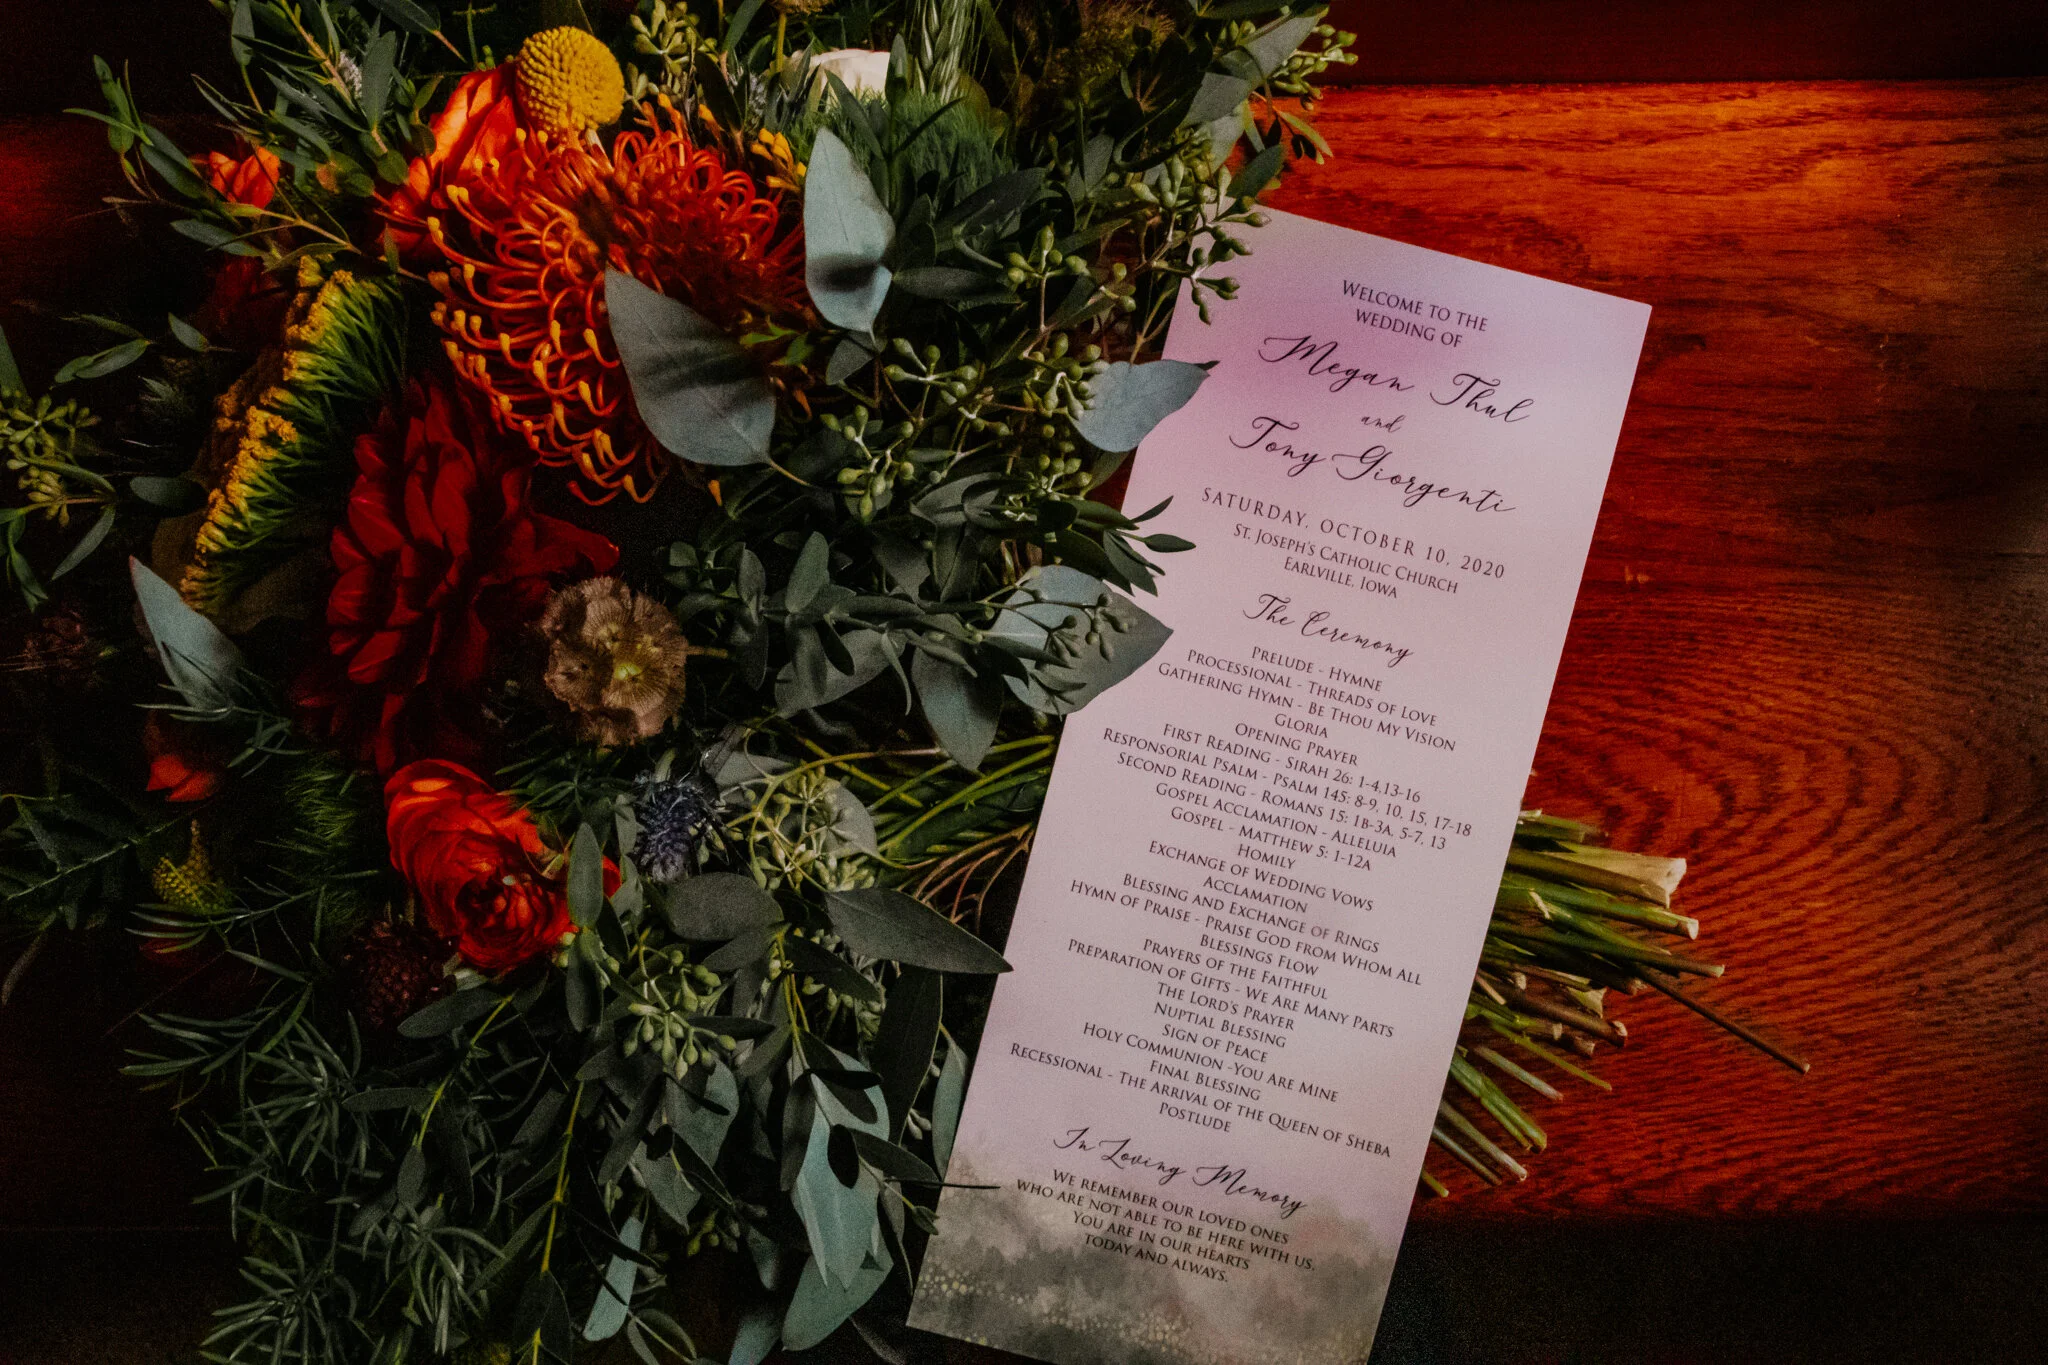 Welcome to the
wedding of
Megan Thul
and
Tony Giorgenti
Saturday, October 10, 2020
St. Joseph's Catholic Church
Earlville, Iowa
The Ceremony
Prelude - Hymne
Processional - Threads of Love
Gathering Hymn - Be Thou My Vision
Gloria
Opening Prayer
First Reading - Sirah 26: 1-4,13-16
Responsorial Psalm - Psalm 145: 8-9, 10, 15, 17-18
Second Reading - Romans 15: 1b-3a, 5-7, 13
Gospel Acclamation - Alleluia
Gospel - Matthew 5: 1-12a
Homily
Exchange of Wedding Vows
Acclamation
Blessing and Exchange of Rings
Hymn of Praise - Praise God from Whom All
Blessings Flow
Prayers of the Faithful
Preparation of Gifts - We Are Many Parts
The Lord's Prayer
Nuptial Blessing
Sign of Peace
Holy Communion -You Are Mine
Final Blessing
Recessional - The Arrival of the Queen of Sheba
Postlude
In Loving Memory
We remember our loved ones
who are not able to be here with us.
You are in our hearts
today and always.